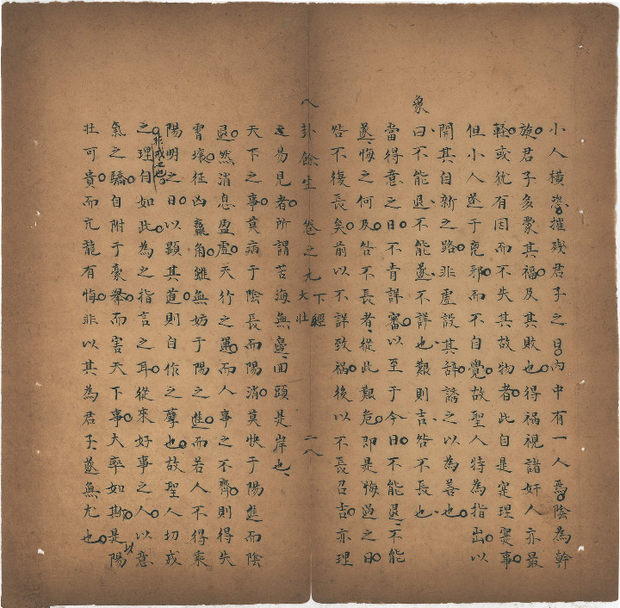 小人橫恣摧殘君子之日內中有一人焉陰為幹
旋君子多蒙其福及其敗也得禍視諸奸人亦最
輕或犹有因而不失其故物者此自是寔理寔事
但小人遂于克邪而不自覺故聖人特為指出以
開其自新之路非虛設其辞誘之以為善也
象曰不能退不能遂不詳也艱則吉咎不長也
當得意之日不肯詳審以至于今日不能退不能
遂悔之何及咎不長者從此艱危即是悔過之日
咎不復長矣前以不詳致禍後以不長召吉亦理
八卦餘生 卷之九 下經 大壯 二八
之易見者所謂苦海無邊回頭是岸也
天下之事莫病于陰長而陽消莫快于陽進而陰
退然消息盈虛天行之運而人事之不齊則得失
實壞征凶羸角雖無妨于陽之進而若人不得乘
陽明之日以顯其道則自作之孽也故聖人切戒
之非戒之也理自如此為之指言之耳從來好事之人以意
氣之驕自附于豪舉而害天下事大率如斯是陽
壯可貴而亢龍有悔非以其為君子遂無尤也